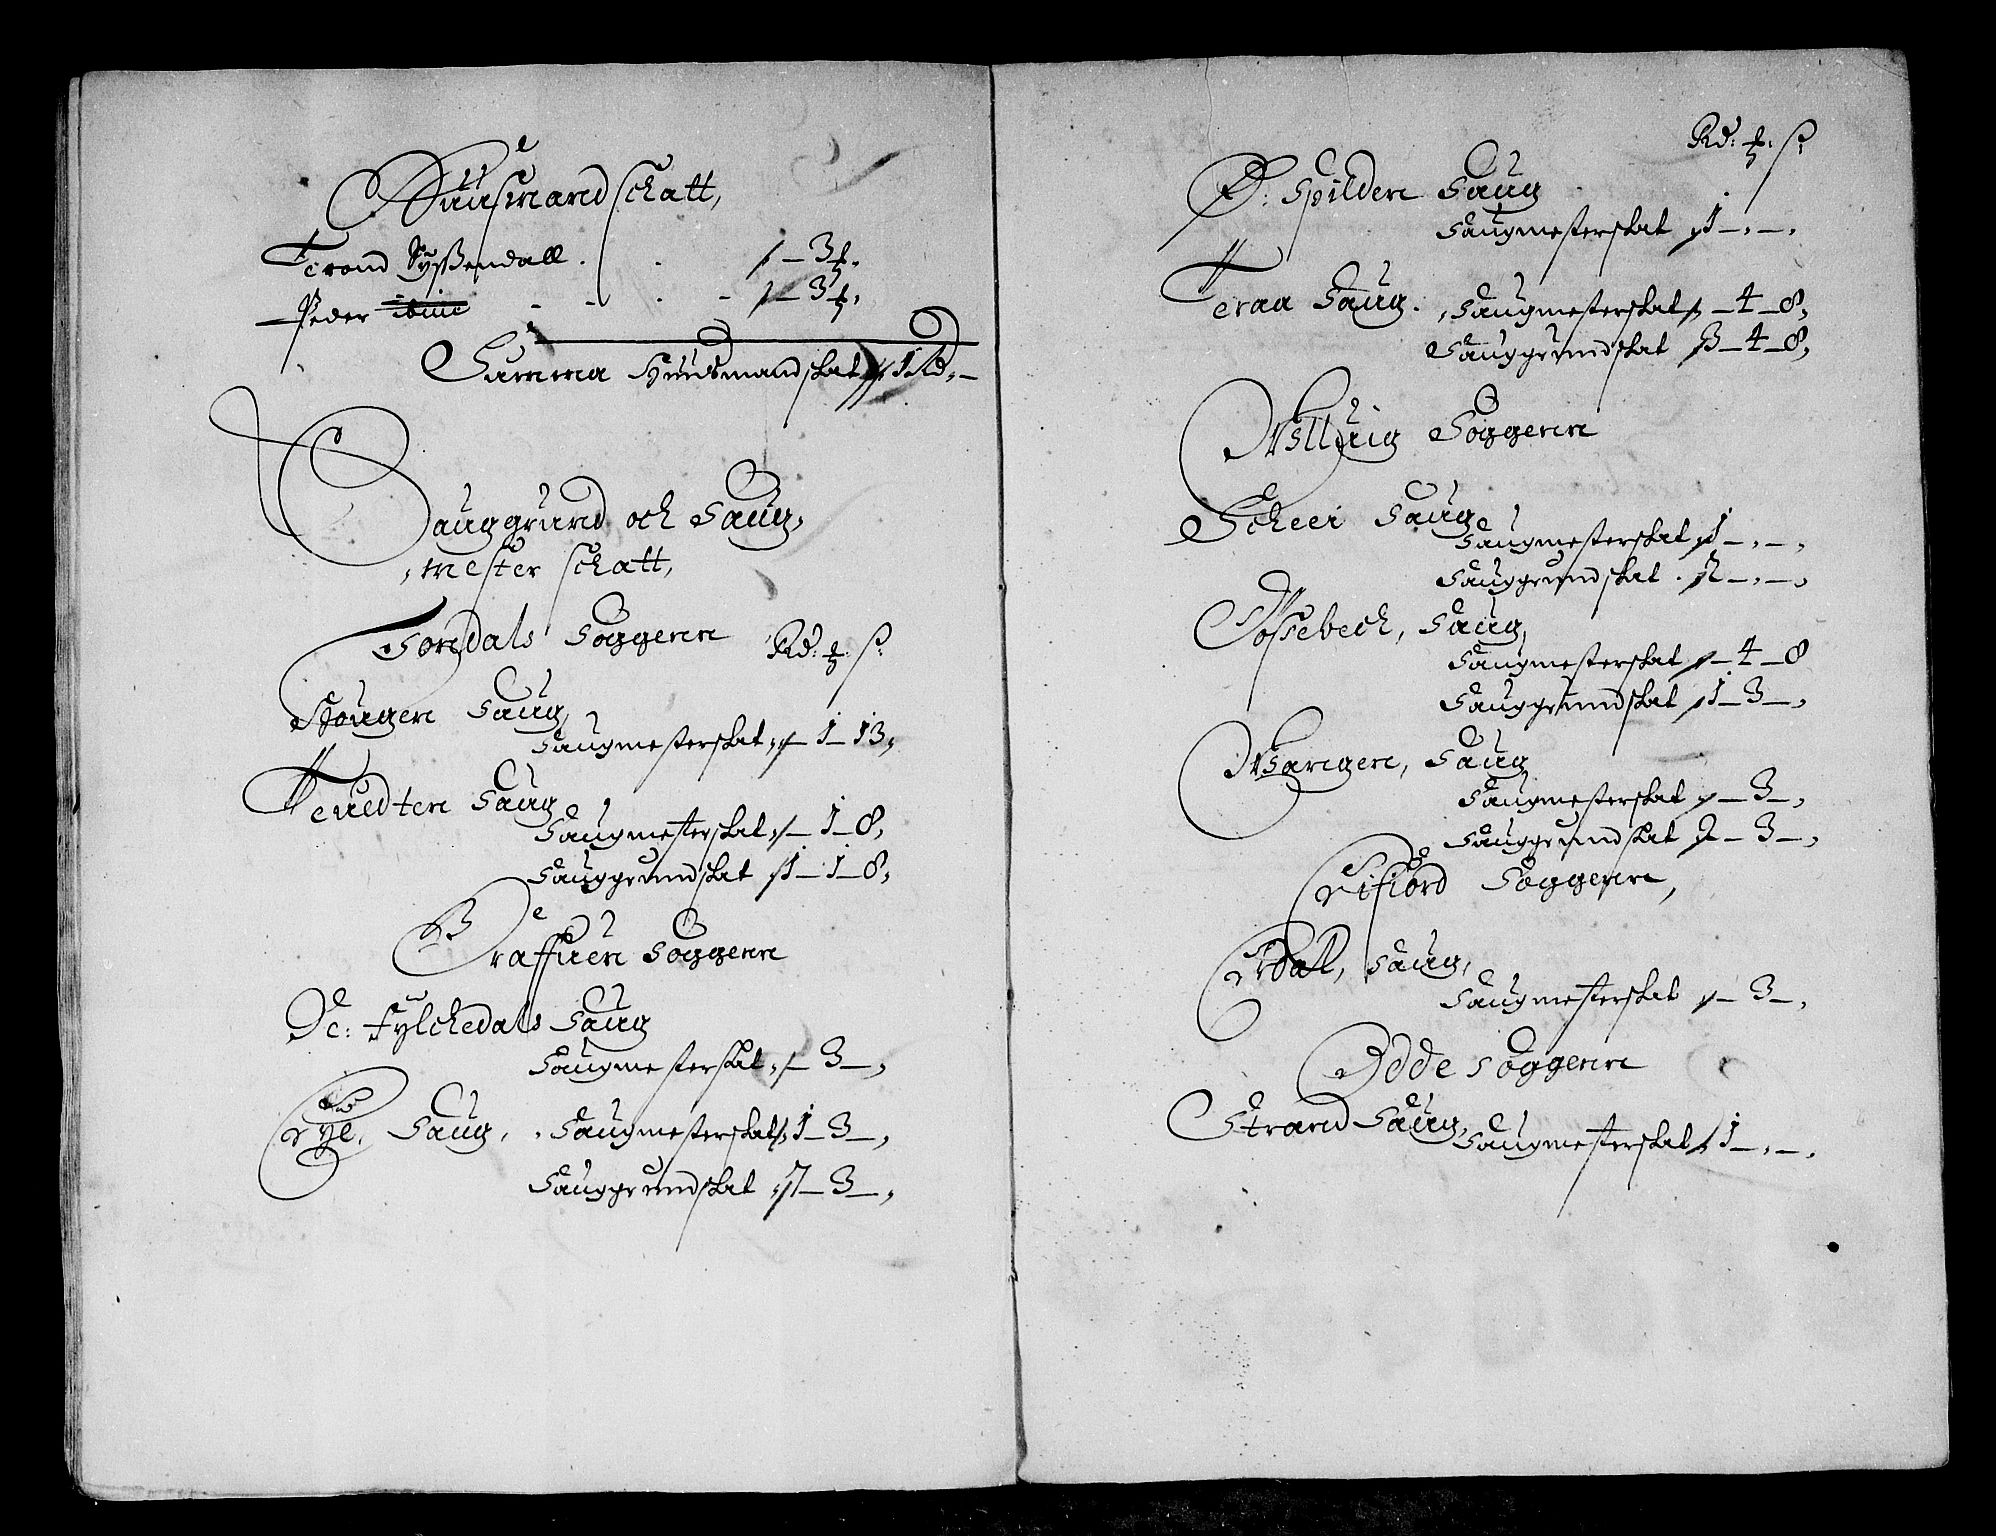 Huusmand schatt,
Terond Syssendall . . - 3 ƒ.
Peder ibnie - - . - - 3 ƒ.
Summa Huusmandskat 1 Rd. -
Sauggrund och Saug,
mester schatt,
Tordals Soggenn Rd: ƒ: s:
Hougen Saug,
Saugmesterskat - 1 - 13,
Teuedten Saug
Saugmesterskat - 1 - 8,
Sauggrundskat 1 - 1 - 8,
Draffuen Soggenn
De: fylchedals Saug
Saugmesterskat - 3 -,
Saug, Saugmesterskat 1 - 3 -,
Sauggrundskat 7 - 3 -,
Rd: ƒ: s:
D: Spilden Saug
Saugmesterskat 1 -.-.
Teraa Saug. Saugmesterskat - 4 - 8,
Sauggrundskat 3 - 4 - 8,
Soggenn
Scheei Saug
Saugmesterskat 1 -.-,
Sauggrundskat . 2 -.-,
Fossebech, Saug,
Saugmesterskat - 4 - 8
Sauggrundskat 1 - 3 -,
Saug
Saugmesterskat - 3 -,
Sauggrundskat 2 - 3 -,
Soggenn,
Saug,
Saugmesterskat - 3 -,
Odde Soggenn
Strand Saug,
Saugmesterskat 1 -.-.